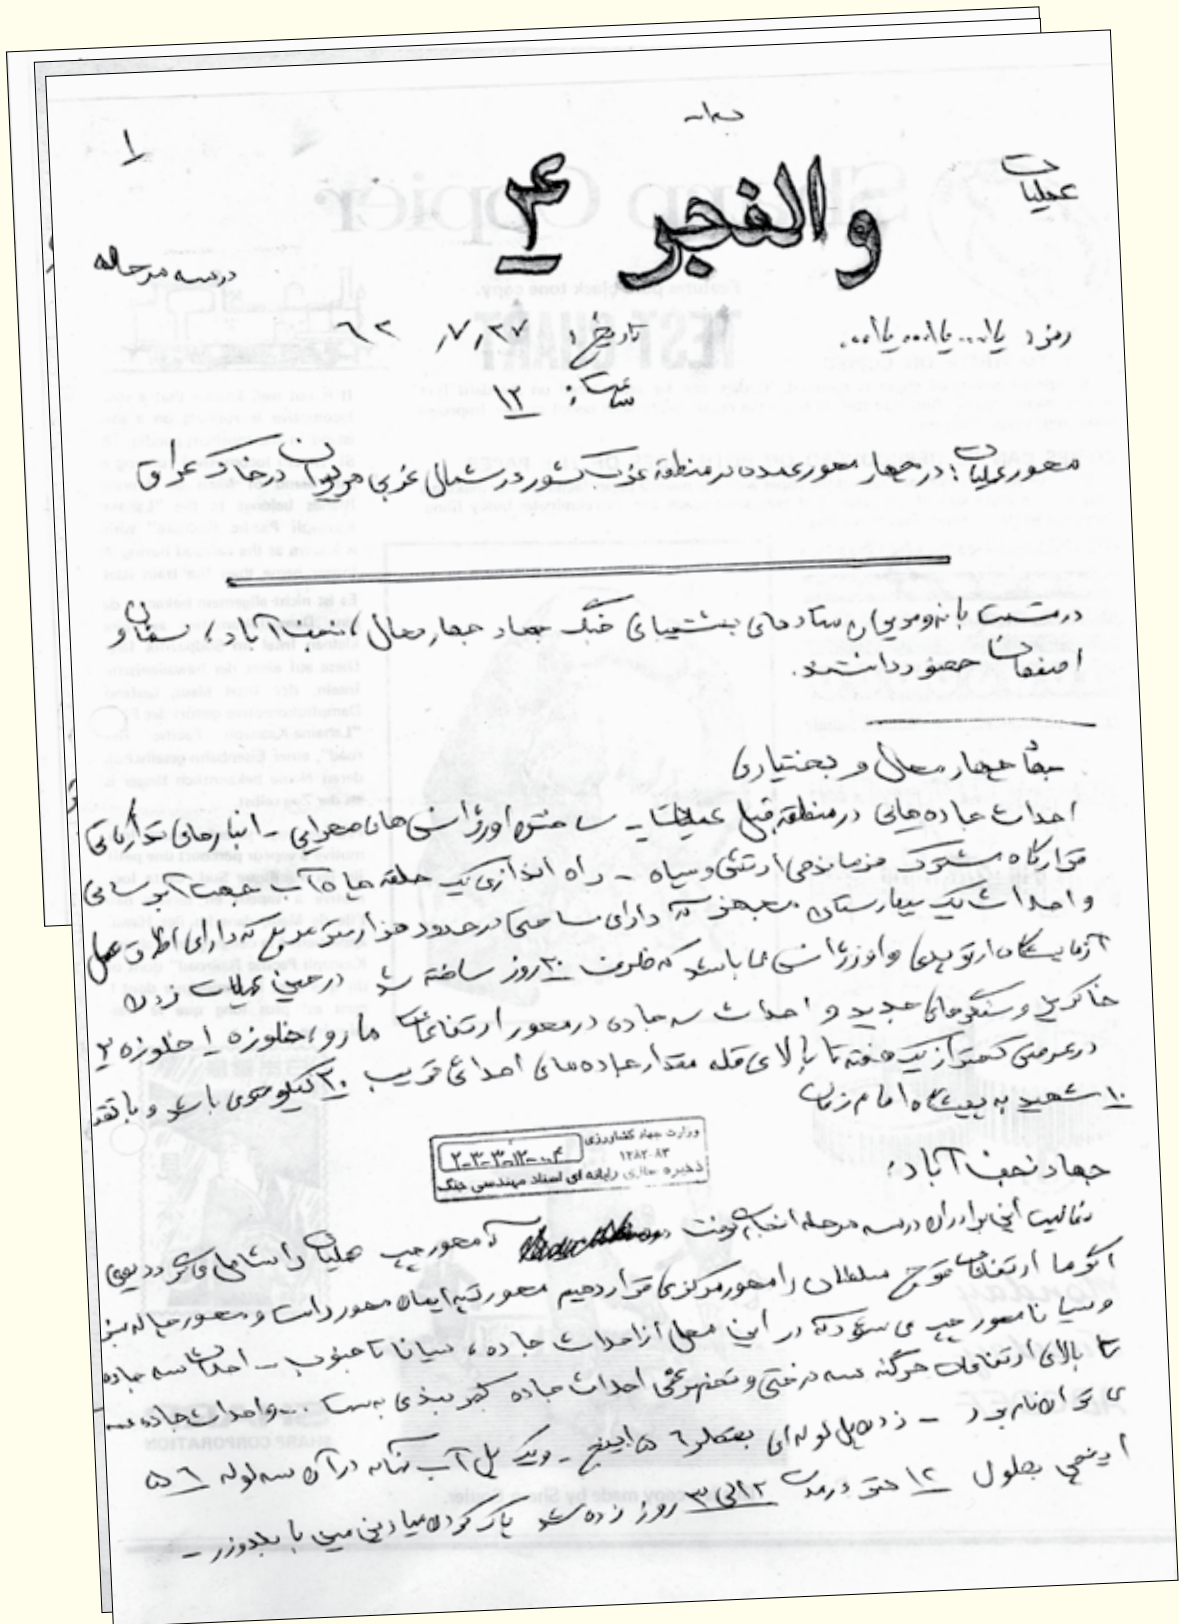 بسمه
۱
عملیات
والفجر ۴
در سه مرحله
رمز: یا... یا... یا...
تاریخ: ۲۷ر۷ر ۶۲
ساعت: ۱۲
محور عملیات: در چهار محور عمده در منطقه غرب کشور در شمال غربی مریوان در خاک عراق
در مشت ستادهای پشتیبانی جنگ جهاد چهارمحال، نجف آباد، سمنان و
اصفهان حضور داشتند.
چهارمحال و بختیاری
احداث جاده هائی در منطقه قبل عملیات - ساختن اورژانس های صحرایی - انبارهای تدارکاتی
قرارگاه مشترک فرماندهی ارتش و سپاه - راه اندازی یک حلقه چاه آب جهت آبرسانی
و احداث یک بیمارستان مجهز که دارای مساحتی در حدود هزار متر مربع که دارای اطاق عمل
آزمایشگاه ارتوپدی و اورژانس می باشد که ظرف ۲۰ روز ساخته شد در حین عملیات زدن
خاکریز و سنگرهای جدید و احداث سه جاده در محور ارتفاعات مارو، خلوزه ۱ خلوزه ۲
در عرض کمتر از یک هفته تا بالای قله مقدار جاده های احداثی قریب ۳۰ کیلومتر می باشد و با
۱۰ شهید به پیشگاه امام زمان
وزارت جهاد کشاورزی
۱۳۸۲-۸۳
۲-۳-۳-۱۲-۰۴
ذخیره سازی رایانه ای اسناد مهندسی جنگ
جهاد نجف آباد:
فعالیت این برادران در سه مرحله انجام گرفت که محور چپ عملیات را شامل می گردد یعنی
اگر ما ارتفاعات سلطان را محور مرکزی قرار دهیم محور تپه ایمان محور راست و محور نیز
محور چپ می شود که در این محل از احداث جاده، تا جنوب - احداث سه جاده
تا بالای ارتفاعات سه درختی و احداث جاده کمربندی - واحداث جاده
می توان نام برد - زدن پل لوله ای بقطر ۵۶ اینچ - ویک پل آب در آن سه لوله ۵۶
اینچی بطول ۱۲ متر در مدت ۲ الی ۳ روز زده شد پاک کردن میادین مین با بلدوزر -